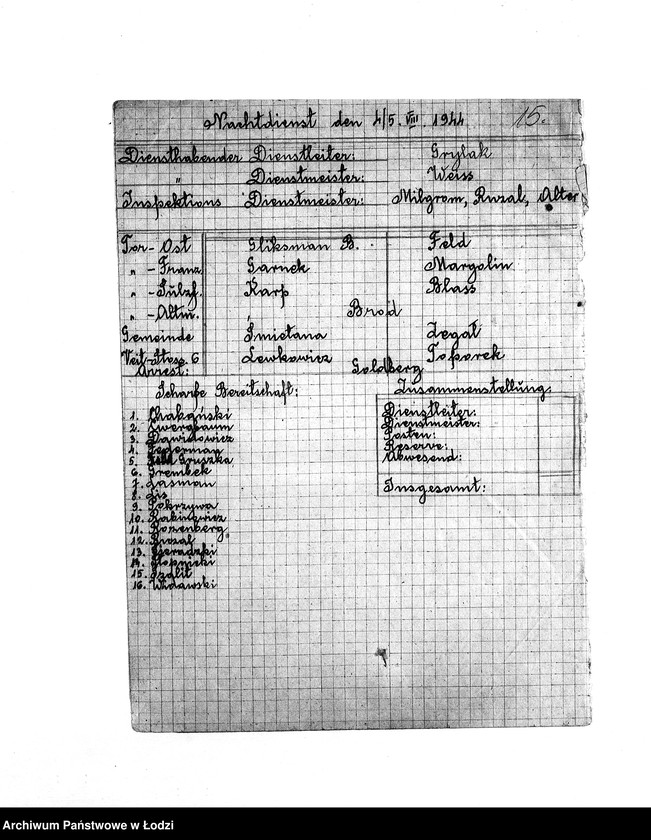 Nachtdienst den 4/5. VIII. 1944 15.
Diensthabender Dienstleiter: Grylak
" Dienstmeister: Weiss
Inspektions Dienstmeister: Milgrom, Ruzal, Alter
Tor-Ost Gliksman B. Feld
" -Franz. Garnek Margolin
" -Sulzf. Karp Blass
" -Altm. Brod
Gemeinde Śmietana Zegał
Veit-Stoss. 6 Lewkowicz Toporek
Arrest: Goldberg
Scharfe Bereitschaft: Zusammenstellung
1.
2. Zwergbaum
3. Dawidowicz
4.
5. Gruszka
6. Grembek
7. Lasman
8. Lis
9. Pokrzywa
10. Rabinowicz
11. Rozenberg
12.
13. Sieradzki
14.
15.
16. Widawski
Dienstleiter:
Dienstmeister:
Posten:
Reserve:
Abwesend:
Insgesamt:
Archiwum Państwowe w Łodzi